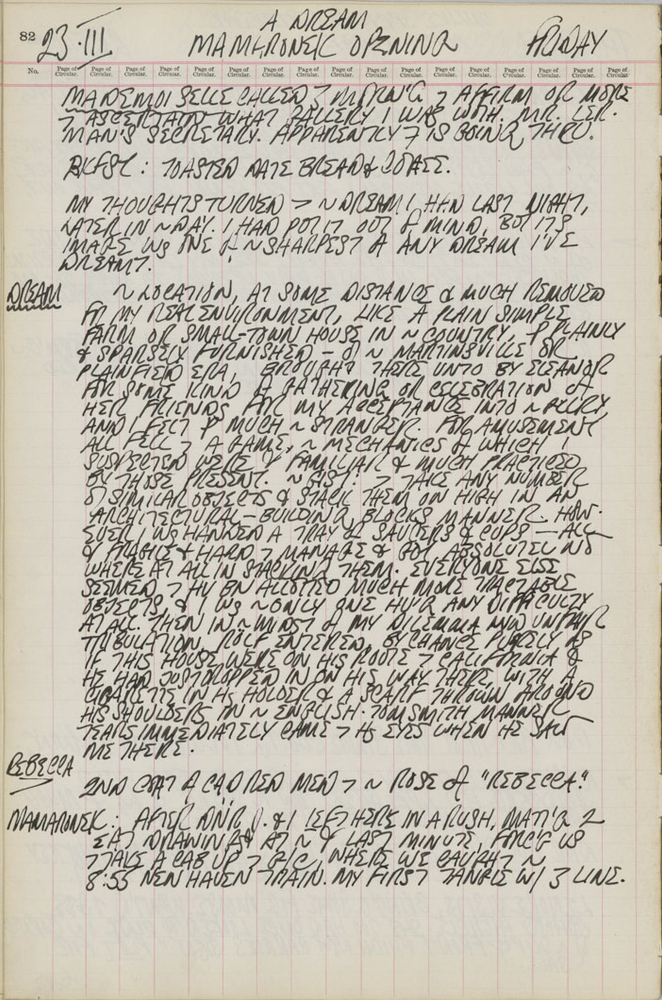 82
23·III
A DREAM
MAMARONECK OPENING
FRIDAY
No. Page of Circular. Page of Circular. Page of Circular. Page of Circular. Page of Circular. Page of Circular. Page of Circular. Page of Circular. Page of Circular. Page of Circular. Page of Circular. Page of Circular. Page of Circular. Page of Circular. Page of Circular. Page of Circular. Page of Circular.
MADEMOISELLE CALLED MORN'G AFFIRM OR MORE
ASCERTAIN WHAT GALLERY I WAS WITH. MR. LER-
MAN'S SECRETARY. APPARENTLY IS GOING THRO.
BKFST: TOASTED DATE BREAD & COFFEE.
MY THOUGHTS TURNED > ~ DREAM I HAD LAST NIGHT,
LATER IN ~ DAY. I HAD PUT IT OUT OF MIND, BUT ITS
IMAGE WS ONE OF ~ SHARPEST OF ANY DREAM I'VE
DREAMT.
DREAM
~ LOCATION, AT SOME DISTANCE & MUCH REMOVED
FM MY REAL ENVIRONMENT, LIKE A PLAIN SIMPLE
FARM OR SMALL-TOWN HOUSE IN ~ COUNTRY, PLAINLY
& SPARSELY FURNISHED – OF ~ MARTINSVILLE OR
PLAINFIELD ERA, BROUGHT THERE UNTO BY ELEANOR
FOR SOME KIND OF GATHERING OR CELEBRATION OF
HER FRIENDS FOR MY ACCEPTANCE INTO
AND I FELT MUCH ~ STRANGER. FOR AMUSEMENT,
ALL FELL > A GAME, ~ MECHANICS OF WHICH I
SUSPECTED WERE FAMILIAR & MUCH PRACTICED
BY THOSE PRESENT. ~ GIST: > TAKE ANY NUMBER
OF SIMILAR OBJECTS & STACK THEM ON HIGH IN AN
ARCHITECTURAL – BUILDING BLOCKS MANNER. HOW-
EVER I WS HANDED A TRAY OF SAUCERS & CUPS – ALL
FRAGILE & HARD > MANAGE & GOT ABSOLUTELY NO
WHERE AT ALL IN STACKING THEM. EVERYONE ELSE
SEEMED > HV BN ALLOTTED MUCH MORE TRACTABLE
OBJECTS, & I WS ~ ONLY ONE HV'G ANY DIFFICULTY
AT ALL. THEN IN ~ MIDST OF MY DILEMMA AND UNFAIR
TRIBULATION, ROLF ENTERED, BY CHANCE PURELY AS
IF THIS HOUSE WERE ON HIS ROUTE > CALIFORNIA &
HE HAD JUST DROPPED IN ON HIS WAY THERE WITH A
CIGARETTE IN HS HOLDER & A SCARF THROWN AROUND
HIS SHOULDERS IN ~ ENGLISH · TOM SMITH MANNER
TEARS IMMEDIATELY CAME > HS EYES WHEN HE SAW
ME THERE.
REBECCA
2ND COAT OF CAD RED MED > ~ ROSE OF "REBECCA."
MAMARONEK: AFTER DNR & I LEFT HERE IN A RUSH, MAT'G 2
DRAWINGS AT ~ LAST MINUTE, FORC'G US
> TAKE A CAB UP > G/C, WHERE WE CAUGHT ~
8:55 NEW HAVEN TRAIN. MY FIRST W/ 3 LINE.